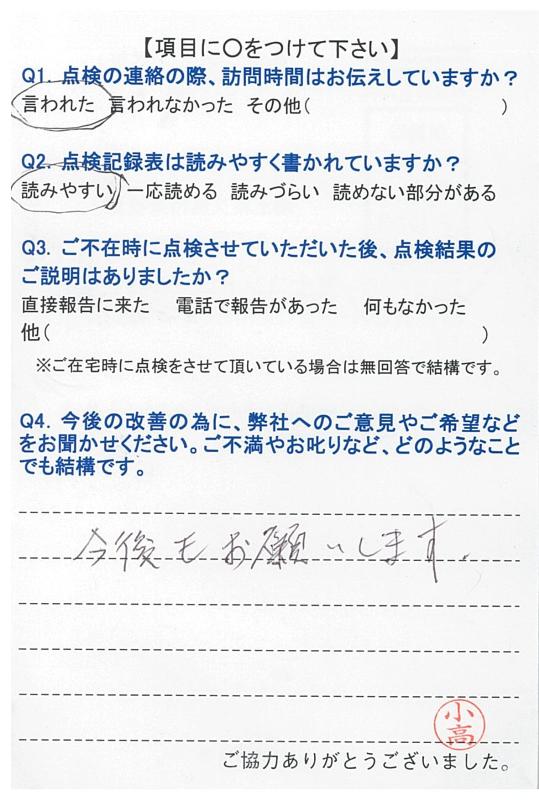 【項目に〇をつけて下さい】
Q1. 点検の連絡の際、訪問時間はお伝えしていますか？
言われた 言われなかった その他(　　　　　)
Q2. 点検記録表は読みやすく書かれていますか？
読みやすい 一応読める 読みづらい 読めない部分がある
Q3. ご不在時に点検させていただいた後、点検結果の
ご説明はありましたか？
直接報告に来た 電話で報告があった 何もなかった
他(　　　　　)
※ご在宅時に点検をさせて頂いている場合は無回答で結構です。
Q4. 今後の改善の為に、弊社へのご意見やご希望など
をお聞かせください。ご不満やお叱りなど、どのようなこと
でも結構です。
今後もお願いします.
小高
ご協力ありがとうございました。